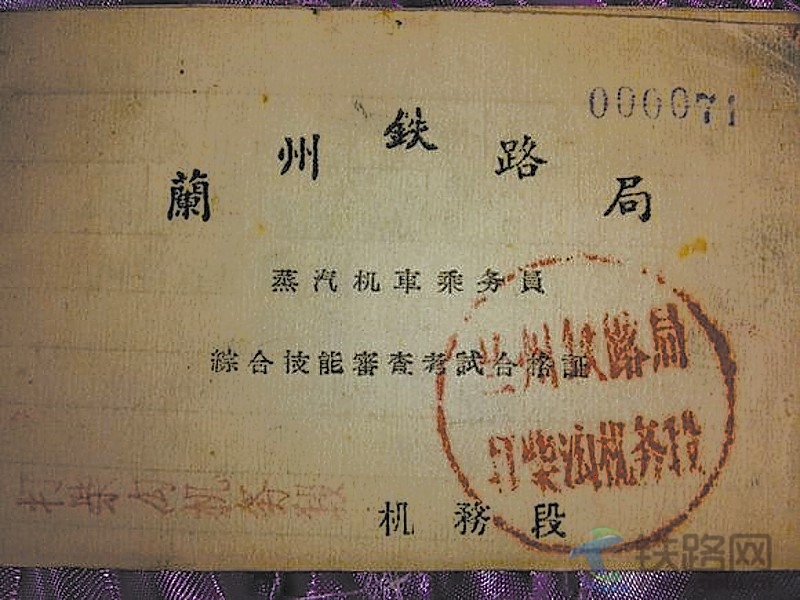 000071
蘭州鉄路局
蒸汽机車乘务員
綜合技能審查考試合格証
兰州铁路局
打柴沟机务段
打柴沟机务段
机務段
铁路网